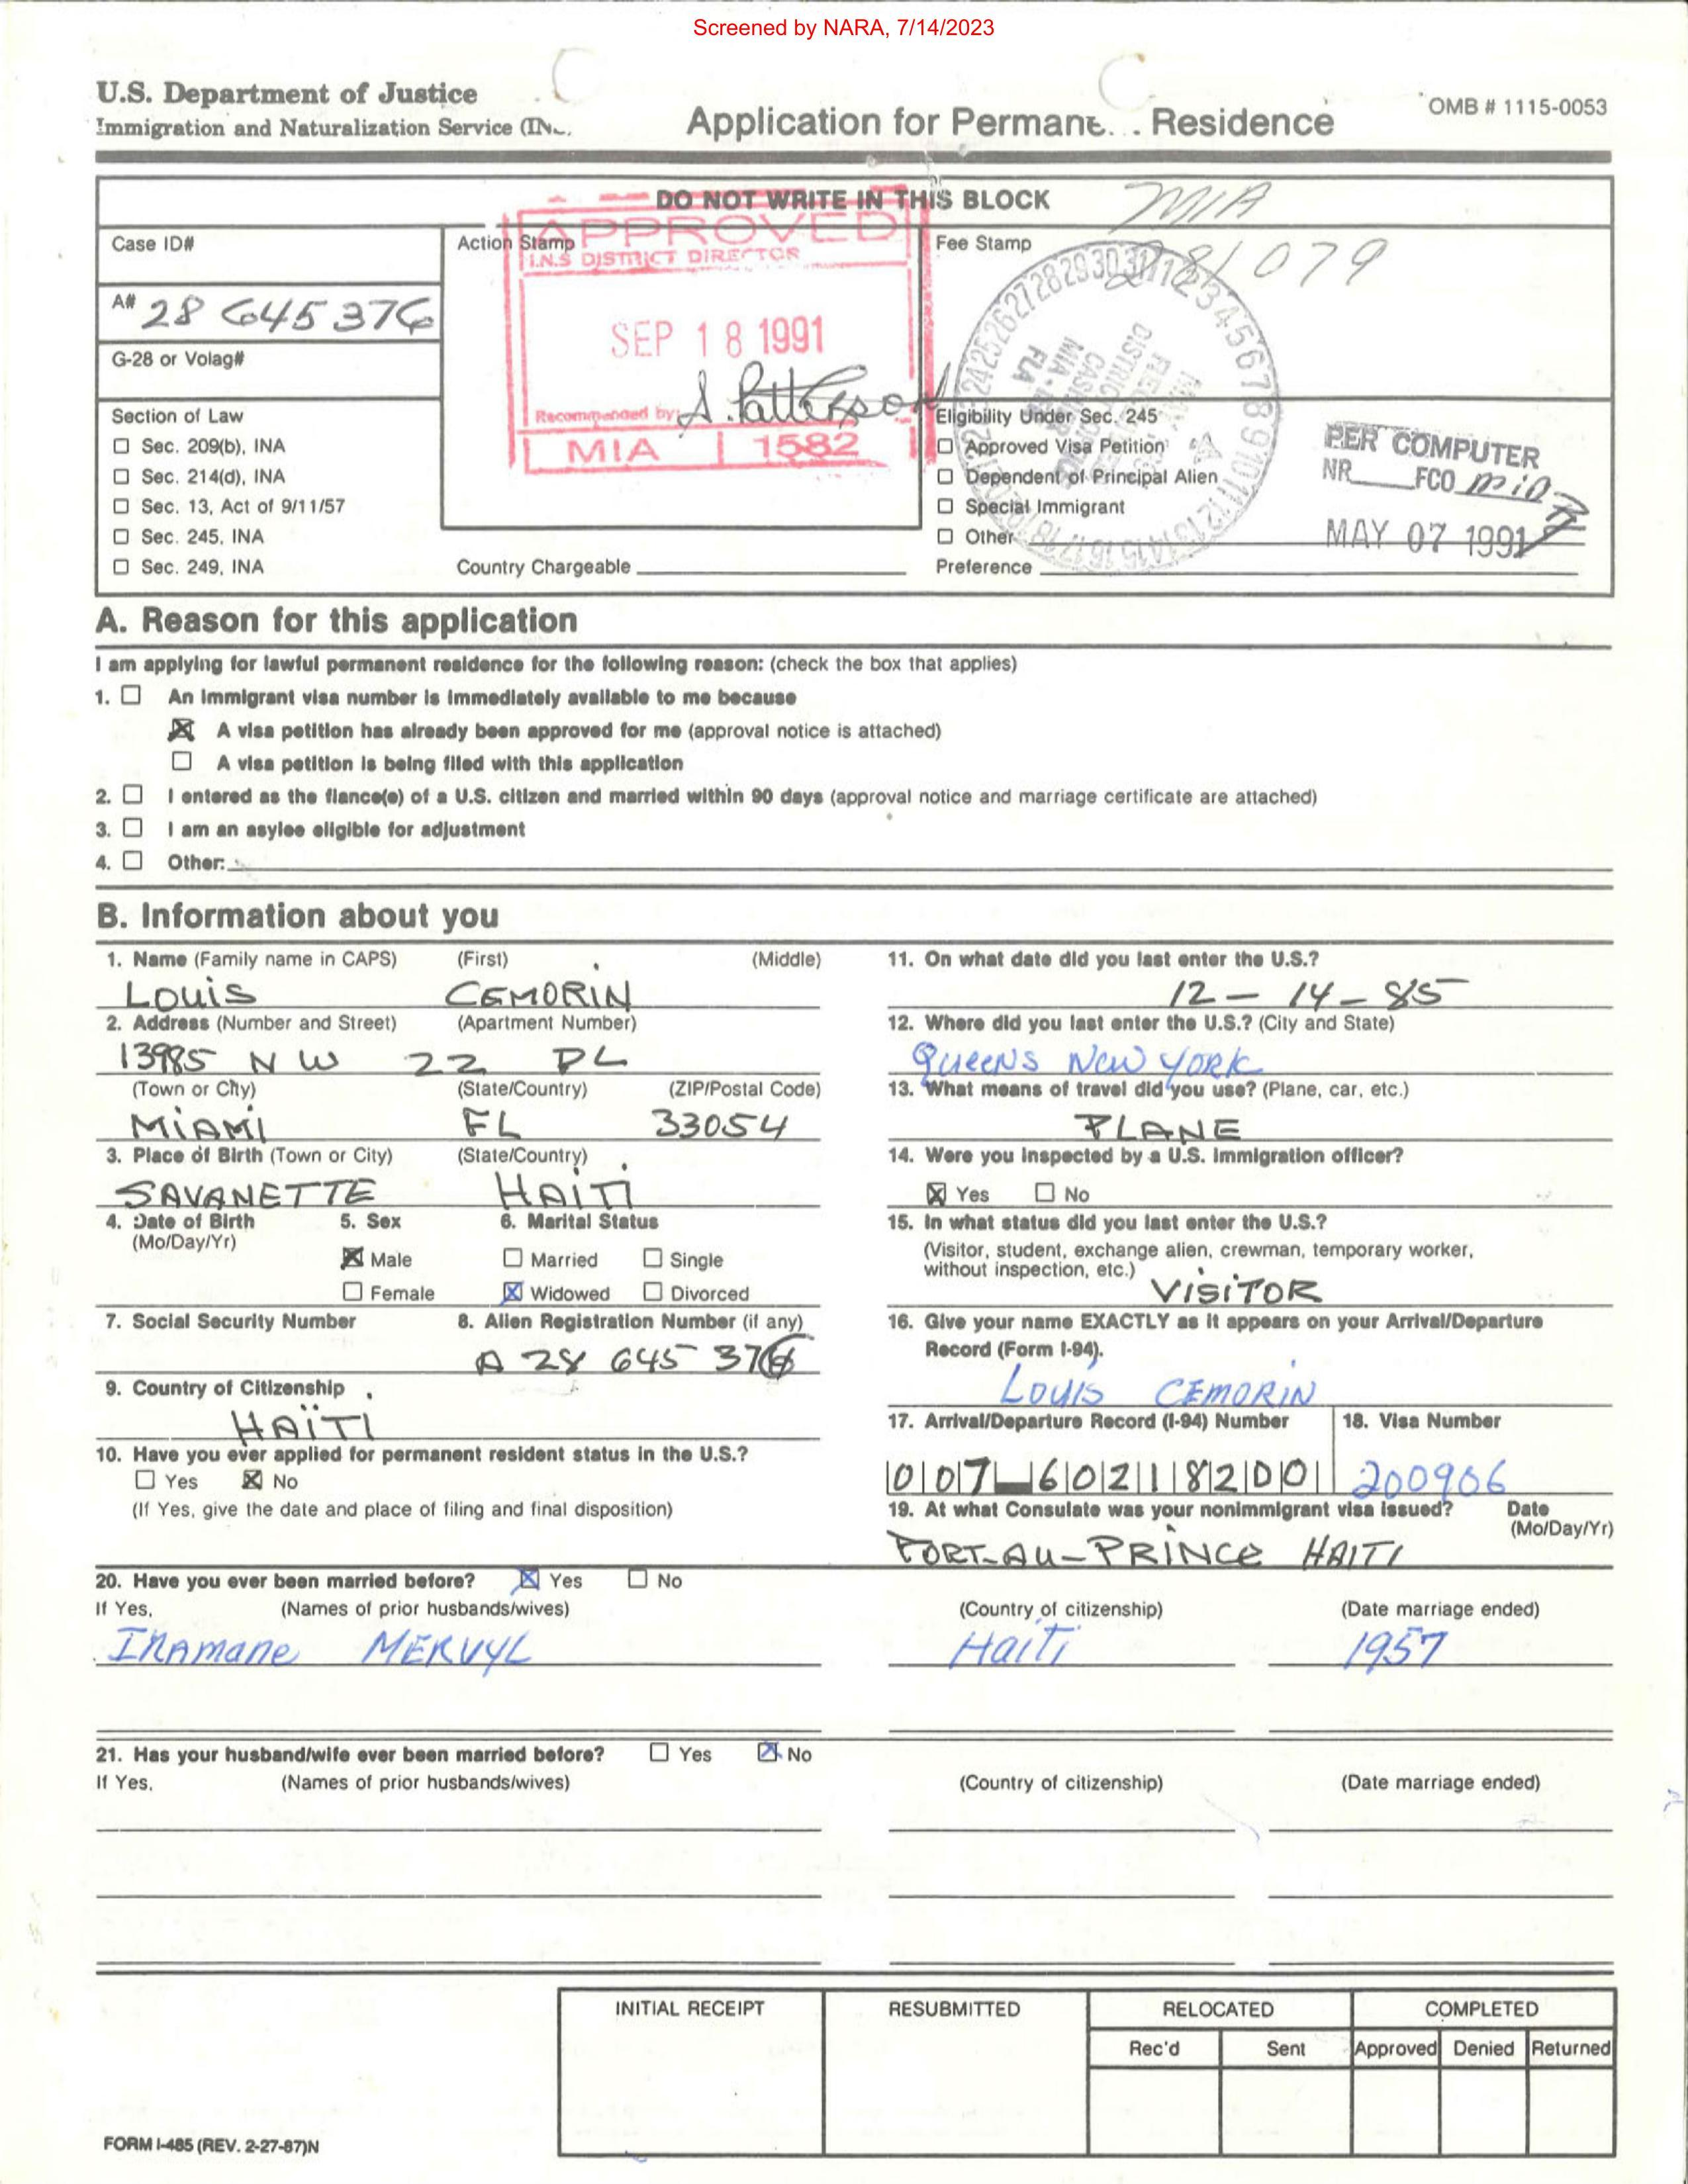 Screened by NARA, 7/14/2023
U.S. Department of Justice
Immigration and Naturalization Service (IN
Application for Permane... Residence
OMB # 1115-0053
DO NOT WRITE IN THIS BLOCK
MIA
281079
Case ID#
Action Stamp
Fee Stamp
APPROVED
I.N.S DISTRICT DIRECTOR
A# 28 645 376
SEP 18 1991
G-28 or Volag#
Recommended by: A. Patterson
MIA 1582
Section of Law
☐ Sec. 209(b), INA
☐ Sec. 214(d), INA
☐ Sec. 13, Act of 9/11/57
☐ Sec. 245, INA
☐ Sec. 249, INA
Country Chargeable
Eligibility Under Sec. 245
☐ Approved Visa Petition
☐ Dependent of Principal Alien
☐ Special Immigrant
☐ Other
Preference
PER COMPUTER
NR FCO mia
MAY 07 1991
A. Reason for this application
I am applying for lawful permanent residence for the following reason: (check the box that applies)
1. ☐ An immigrant visa number is immediately available to me because
☒ A visa petition has already been approved for me (approval notice is attached)
☐ A visa petition is being filed with this application
2. ☐ I entered as the fiance(e) of a U.S. citizen and married within 90 days (approval notice and marriage certificate are attached)
3. ☐ I am an asylee eligible for adjustment
4. ☐ Other:
B. Information about you
1. Name (Family name in CAPS) (First) (Middle)
LOUIS CEMORIN
2. Address (Number and Street) (Apartment Number)
13985 N W 22 PL
(Town or City) (State/Country) (ZIP/Postal Code)
MIAMI FL 33054
3. Place of Birth (Town or City) (State/Country)
SAVANETTE HAITI
4. Date of Birth (Mo/Day/Yr)
5. Sex
☒ Male
☐ Female
6. Marital Status
☐ Married ☐ Single
☒ Widowed ☐ Divorced
7. Social Security Number
8. Alien Registration Number (if any)
A 28 645 376
9. Country of Citizenship
HAÏTI
10. Have you ever applied for permanent resident status in the U.S.?
☐ Yes ☒ No
(If Yes, give the date and place of filing and final disposition)
11. On what date did you last enter the U.S.?
12 - 14 - 85
12. Where did you last enter the U.S.? (City and State)
QUEENS NEW YORK
13. What means of travel did you use? (Plane, car, etc.)
PLANE
14. Were you inspected by a U.S. immigration officer?
☒ Yes ☐ No
15. In what status did you last enter the U.S.?
(Visitor, student, exchange alien, crewman, temporary worker,
without inspection, etc.)
VISITOR
16. Give your name EXACTLY as it appears on your Arrival/Departure
Record (Form I-94).
LOUIS CEMORIN
17. Arrival/Departure Record (I-94) Number
007 60218200
18. Visa Number
200906
19. At what Consulate was your nonimmigrant visa issued? Date
(Mo/Day/Yr)
PORT-AU-PRINCE HAITI
20. Have you ever been married before? ☒ Yes ☐ No
If Yes, (Names of prior husbands/wives) (Country of citizenship) (Date marriage ended)
IRAMANE MERVYL Haiti 1957
21. Has your husband/wife ever been married before? ☐ Yes ☒ No
If Yes, (Names of prior husbands/wives) (Country of citizenship) (Date marriage ended)
INITIAL RECEIPT RESUBMITTED RELOCATED COMPLETED
Rec'd Sent Approved Denied Returned
FORM I-485 (REV. 2-27-87)N